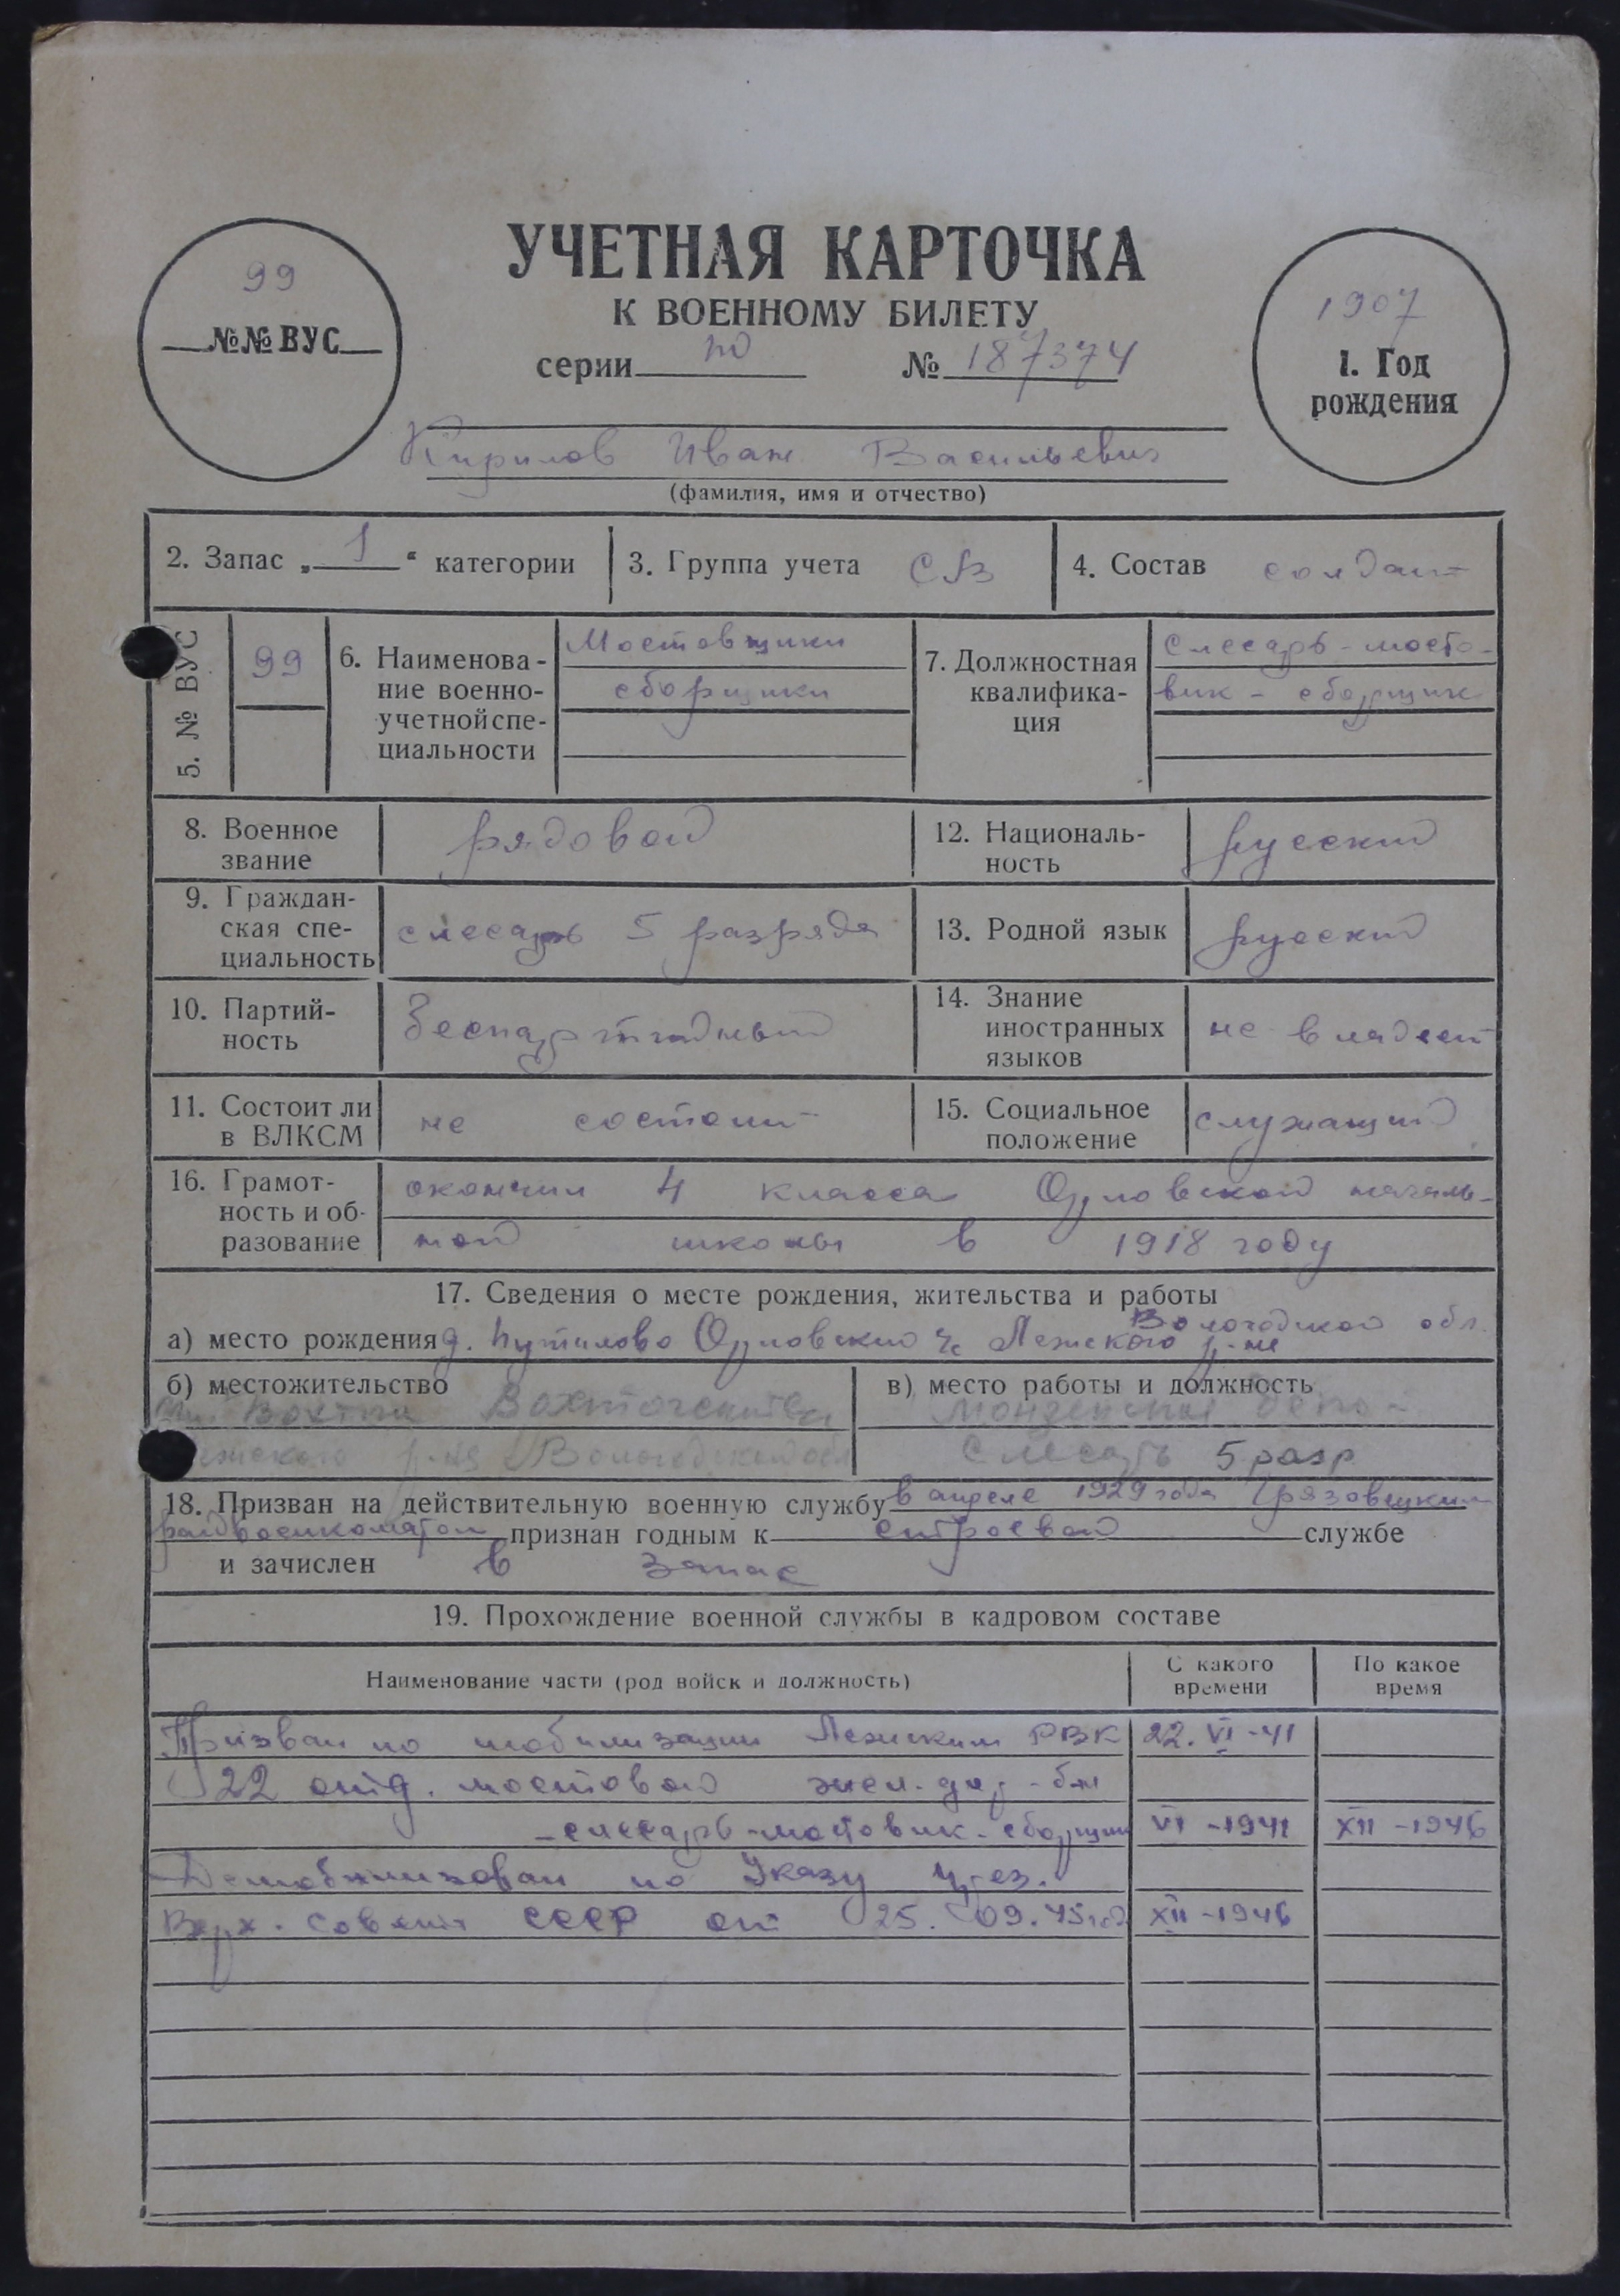 УЧЕТНАЯ КАРТОЧКА
К ВОЕННОМУ БИЛЕТУ
серии по № 187374
99
№№ ВУС
1907
1. Год
рождения
Кирилов Иван Васильевич
(фамилия, имя и отчество)
2. Запас „1“ категории
3. Группа учета СА
4. Состав солдат
5. № ВУС
99
6. Наименова-
ние военно-
учетной спе-
циальности
Мостовщики
сборщики
7. Должностная
квалифика-
ция
Слесарь-мосто-
вик - сборщик
8. Военное
звание
рядовой
12. Националь-
ность
русский
9. Граждан-
ская спе-
циальность
слесарь 5 разряда
13. Родной язык
русский
10. Партий-
ность
беспартийный
14. Знание
иностранных
языков
не владеет
11. Состоит ли
в ВЛКСМ
не состоит
15. Социальное
положение
служащий
16. Грамот-
ность и об-
разование
окончил 4 класса Орловской началь-
ной школы в 1918 году
17. Сведения о месте рождения, жительства и работы
Вологодской обл.
а) место рождения д. Путилово Орловский с/с Лежского р-на
б) местожительство
Вохтога
р-на Вологодской обл
в) место работы и должность
Монзенская депо-
Слесарь 5 разр
18. Призван на действительную военную службу в апреле 1929 года Грязовецким
райвоенкоматом признан годным к строевой службе
и зачислен в запас
19. Прохождение военной службы в кадровом составе
Наименование части (род войск и должность)
С какого
времени
По какое
время
Призван по мобилизации Лежским РВК 22.VI-41
22 отд. мостовой жел.дор-б-н
-слесарь-мостовик-сборщик VI-1941 XII-1946
Демобилизован по Указу през.
Верх. Совета СССР от 25.09.45 год XII-1946